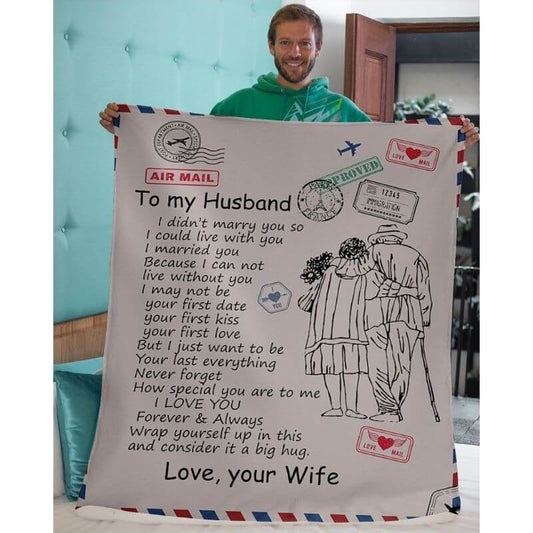 POST DEPARTMENT • AIR MAIL
AIR MAIL
APPROVED
LOVE MAIL
12345
IMMIGRATION
PARIS
FRANCE
To my Husband
I didn't marry you so
I could live with you
I married you
Because I can not
live without you
I may not be
your first date
your first kiss
your first love
But I just want to be
Your last everything
Never forget
How special you are to me
I LOVE YOU
Forever & Always
Wrap yourself up in this
and consider it a big hug.
Love, your Wife
I
YOU
LOVE MAIL